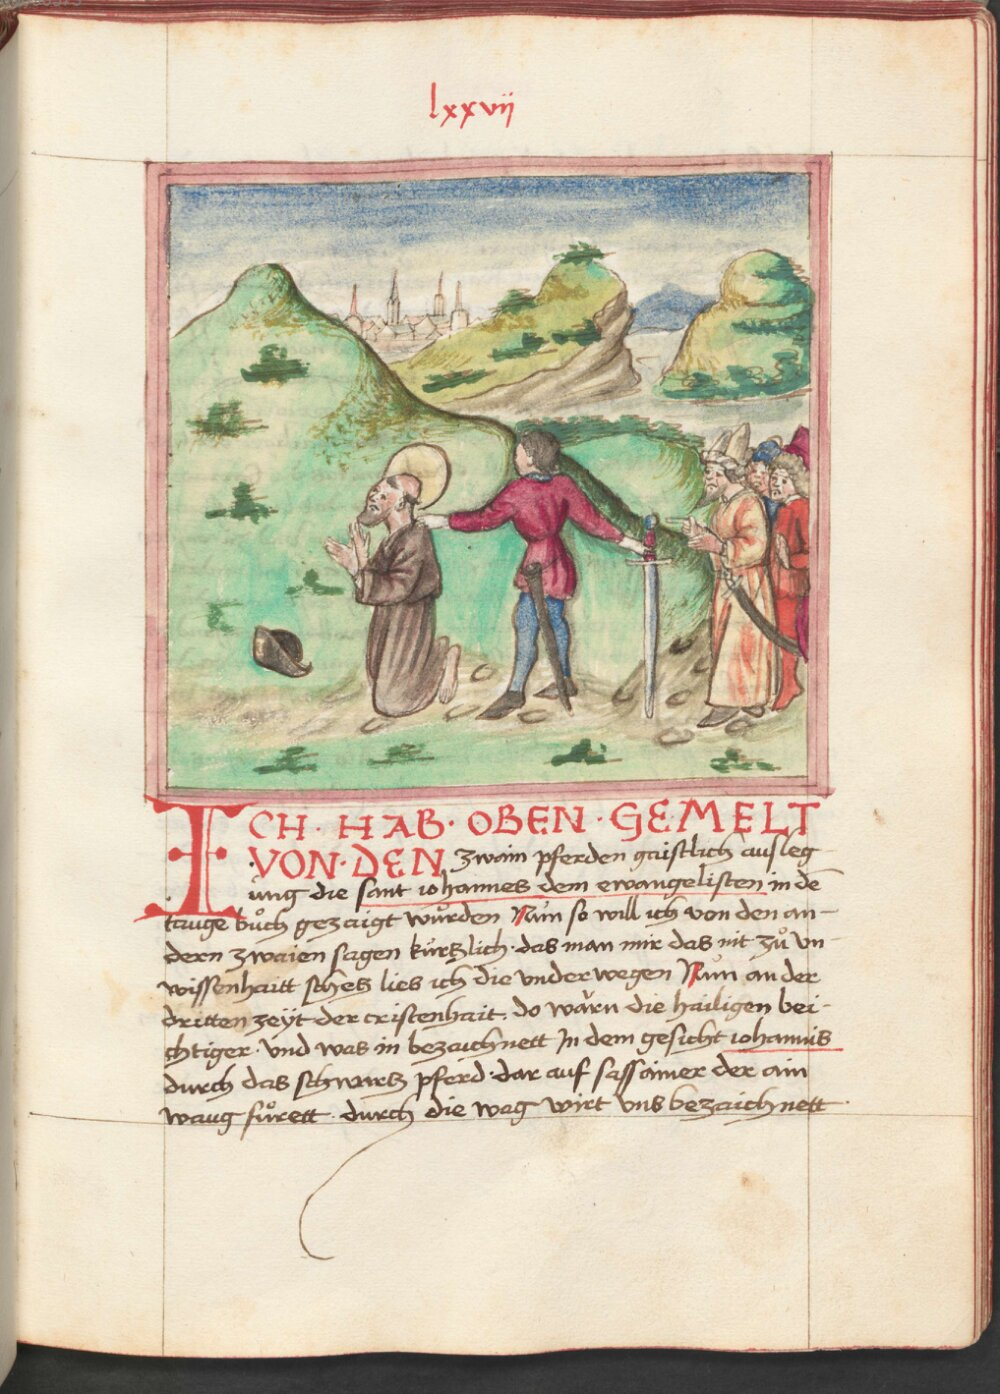 lxxvii
ICH · HAB · OBEN · GEMELT
VON · DEN zwain pferden gaistlich ausleg
ung die sant iohannes dem ewangelisten in dē
tauge bůch gezaigt wurden Nun so will ich von den an–
dern zwaien sagen kürtzlich · das man mir das nit zů vn–
wissenhaitt schetz lies ich die vnder wegen Nun an der
dritten zeÿt der cristenhait · do wärn die hailigen bei–
chtiger · Vnd was in bezaichnett In dem gesicht iohannis
durch das schwartz pferd · dar auf sass ainer der ain
waug fůrett · durch die wag wirt vns bezaichnett ·